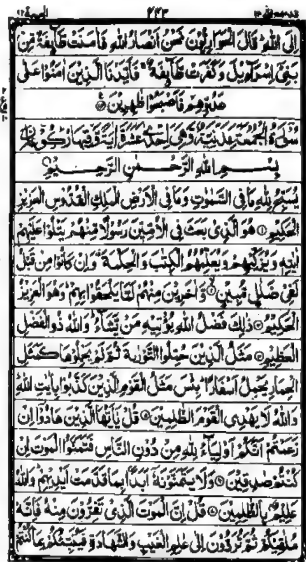 قد سمع الله ٢٨ ٤٤٣ الجمعة ٦٢
إِلَى اللهِ قَالَ الْحَوَارِيُّونَ نَحْنُ أَنْصَارُ اللهِ فَآمَنَتْ طَّآئِفَةٌ مِّنْ
بَنِىٓ اِسْرَآءِيْلَ وَكَفَرَتْ طَّآئِفَةٌ فَاَيَّدْنَا الَّذِيْنَ اٰمَنُوْا عَلٰى
عَدُوِّهِمْ فَاَصْبَحُوْا ظٰهِرِيْنَ
سُوْرَةُ الْجُمُعَةِ مَدَنِيَّةٌ وَّهِىَ اِحْدٰى عَشَرَةَ اٰيَةً وَّفِيْهَا رُكُوْعَانِ
بِسْمِ اللهِ الرَّحْمٰنِ الرَّحِيْمِ
يُسَبِّحُ لِلّٰهِ مَا فِى السَّمٰوٰتِ وَمَا فِى الْاَرْضِ الْمَلِكِ الْقُدُّوْسِ الْعَزِيْزِ
الْحَكِيْمِ ۝ هُوَ الَّذِىْ بَعَثَ فِى الْاُمِّيّٖنَ رَسُوْلًا مِّنْهُمْ يَتْلُوْا عَلَيْهِمْ
اٰيٰتِهٖ وَيُزَكِّيْهِمْ وَيُعَلِّمُهُمُ الْكِتٰبَ وَالْحِكْمَةَ وَاِنْ كَانُوْا مِنْ قَبْلُ
لَفِىْ ضَلٰلٍ مُّبِيْنٍ ۝ وَّاٰخَرِيْنَ مِنْهُمْ لَمَّا يَلْحَقُوْا بِهِمْ وَهُوَ الْعَزِيْزُ
الْحَكِيْمُ ۝ ذٰلِكَ فَضْلُ اللهِ يُؤْتِيْهِ مَنْ يَّشَآءُ وَاللهُ ذُو الْفَضْلِ
الْعَظِيْمِ ۝ مَثَلُ الَّذِيْنَ حُمِّلُوا التَّوْرٰىةَ ثُمَّ لَمْ يَحْمِلُوْهَا كَمَثَلِ
الْحِمَارِ يَحْمِلُ اَسْفَارًا بِئْسَ مَثَلُ الْقَوْمِ الَّذِيْنَ كَذَّبُوْا بِاٰيٰتِ اللهِ
وَاللهُ لَا يَهْدِى الْقَوْمَ الظّٰلِمِيْنَ ۝ قُلْ يٰٓاَيُّهَا الَّذِيْنَ هَادُوْٓا اِنْ
زَعَمْتُمْ اَنَّكُمْ اَوْلِيَآءُ لِلّٰهِ مِنْ دُوْنِ النَّاسِ فَتَمَنَّوُا الْمَوْتَ اِنْ
كُنْتُمْ صٰدِقِيْنَ ۝ وَلَا يَتَمَنَّوْنَهٗٓ اَبَدًاۢ بِمَا قَدَّمَتْ اَيْدِيْهِمْ وَاللهُ
عَلِيْمٌۢ بِالظّٰلِمِيْنَ ۝ قُلْ اِنَّ الْمَوْتَ الَّذِىْ تَفِرُّوْنَ مِنْهُ فَاِنَّهٗ
مُلٰقِيْكُمْ ثُمَّ تُرَدُّوْنَ اِلٰى عٰلِمِ الْغَيْبِ وَالشَّهَادَةِ فَيُنَبِّئُكُمْ بِمَا كُنْتُمْ